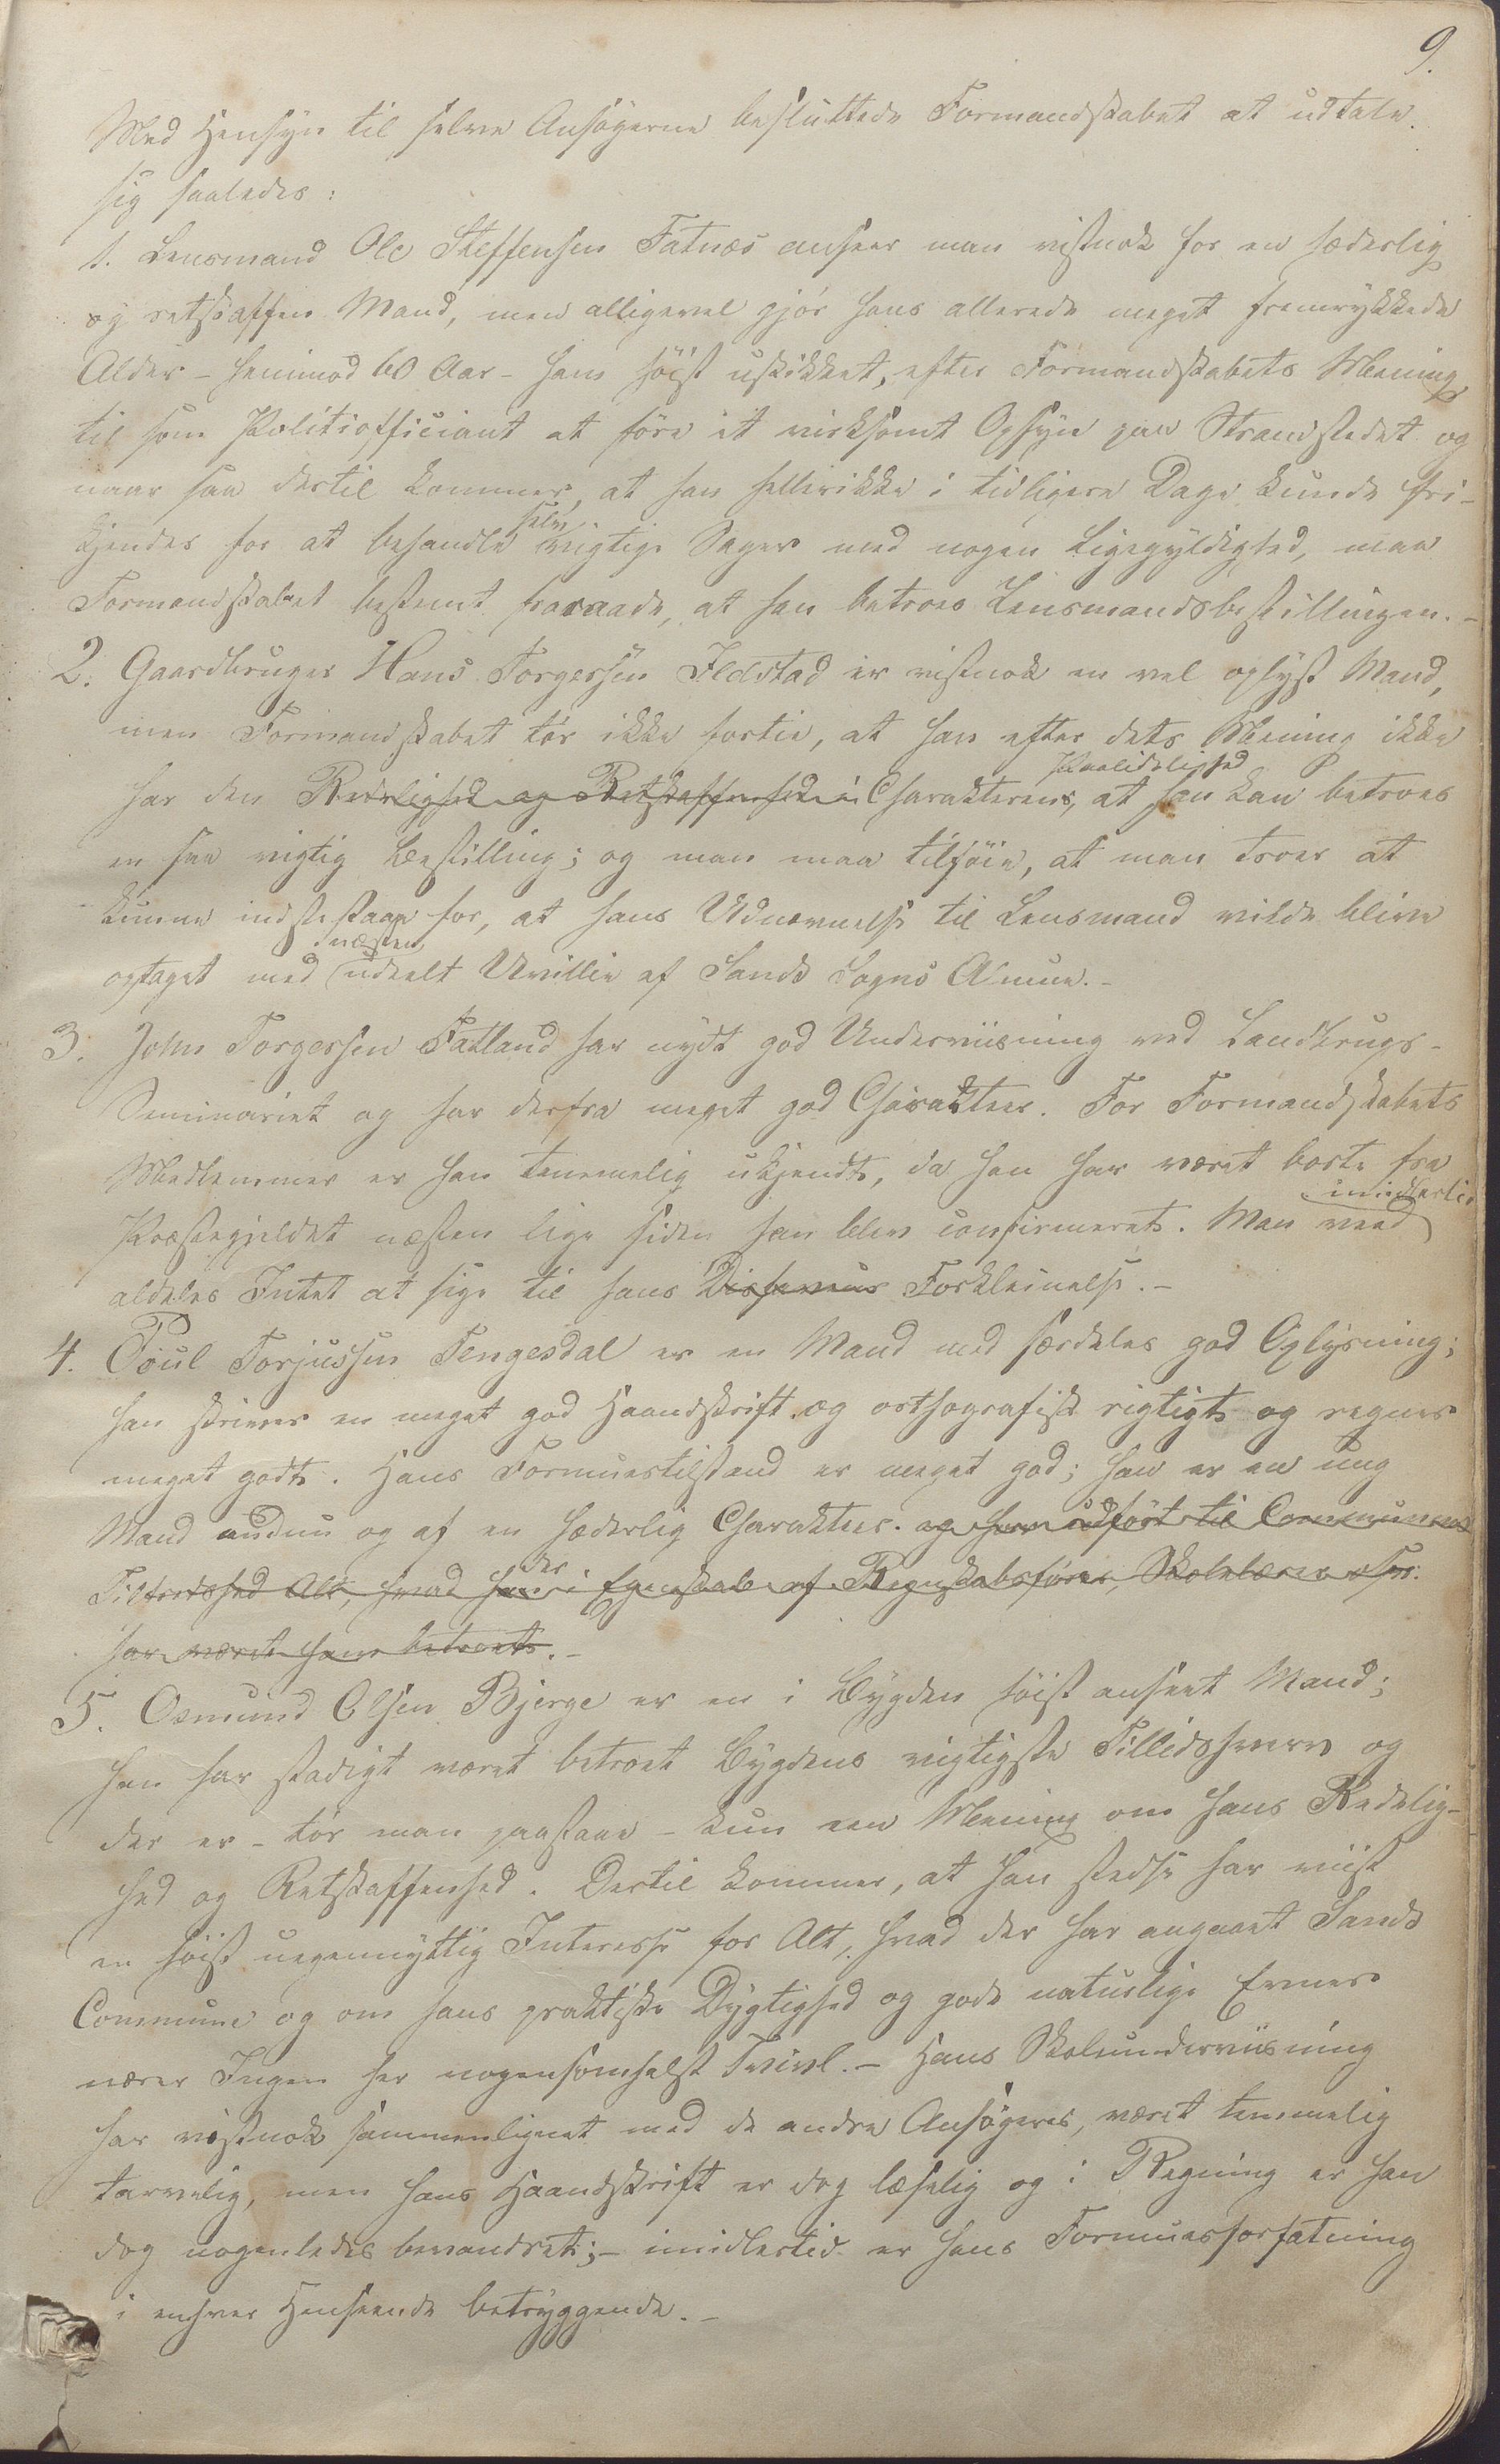 9.
Med Hensyn til selve Ansøgerne besluttede Formandskabet at udtale
sig saaledes:
1. Lensmand Ole Steffensen Fatnæs anseer man vistnok for en hæderlig
og retskaffen Mand, men alligevel gjör hans allerede meget fremrykkede
Alder - henimod 60 Aar - ham höist uskikket, efter Formandskabets Mening,
til som Politiofficiant at före et virksomt Opsyn paa Strandstedet og
naar saa dertil kommer, at han hellerikke i tidligere Dage kunde fri-
kjendes for at behandle selv vigtige Sager med nogen Ligegyldighed, maa
Formandskabet bestemt fraraade, at han betroes Lensmandsbestillingen. -
2. Gaardbruger Hans Torgersen Ilstad er vistnok en vel oplyst Mand,
men Formandskabet tör ikke fortie, at han efter dets Mening ikke
har den Redelighed og Retskaffenhed i Charakterens Paalidelighed, at han kan betroes
en saa vigtig Bestilling; og man maa tilföie, at man troer at
kunne indestaae for, at hans Udnævnelse til Lensmand vilde blive
optaget med næsten udeelt Uvillie af Sands Sogns Almue. -
3. John Torgersen Fatland har nydt god Underviisning ved Landbrugs-
Seminariet og har derfra meget god Charakteer. For Formandskabets
Medlemmer er han temmelig ukjendt, da han har været borte fra
Præstegjeldet næsten lige siden han blev confirmeret. Man veed imidlertid
aldeles Intet at sige til hans Disfaveur Forkleinelse. -
4. Poul Torjussen Tengesdal er en Mand med særdeles god Oplysning;
han skriver en meget god Haandskrift og orthografisk rigtigt og regner
meget godt. Hans Formuestilstand er meget god; han er en ung
Mand endnu og af en hæderlig Charakteer. og har udfört til Communens
Tilfredshed Alt, hvad der i Egenskab af Regnskabsförer, Skolelærer
har været ham betroet. -
5. Osmund Olsen Bjerge er en i Bygden höist anseet Mand;
han har stadigt været betroet Bygdens vigtigste Tillidshverv og
der er - tör man paastaae - kun een Mening om hans Redelig-
hed og Retskaffenhed. Dertil kommer, at han stedse har viist
en höist uegennyttig Interesse for Alt, hvad der har angaaet Sands
Commune og om hans praktiske Dygtighed og gode naturlige Evner
nærer Ingen her nogensomhelst Tvivl. - Hans Skoleunderviisning
har vistnok sammenlignet med de andre Ansögeres, været temmelig
tarvelig, men hans Haandskrift er dog læselig og i Regning er han
dog nogenledes bevandret; - imidlertid er hans Formuesforfatning
i enhver Henseende betryggende. -